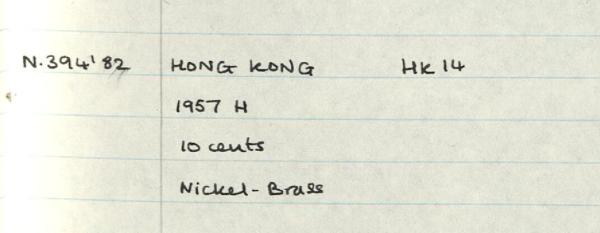 N.394'82 HONG KONG HK 14
1957 H
10 cents
Nickel-Brass